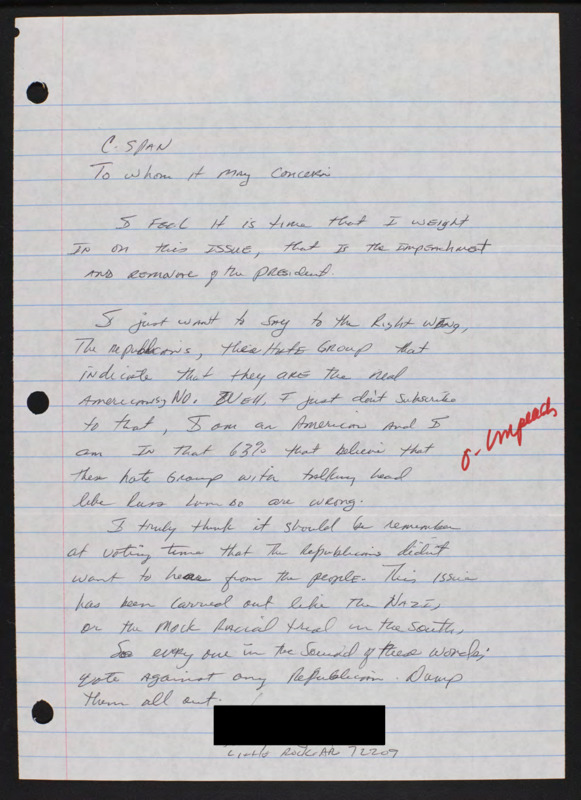 C. SPAN
To whom it may concern
I Feel it is time that I weight
In on this ISSUE, that is the Impeachment
AND removal of the PRESIDENT.
I just want to say to the Right Wing,
The republicans, these Hate Group that
indicate that they ARE the real
Americans, NO. Well, I just don't subscribe
to that, I am an American and I
am In that 63% that believe that
these hate Group with talking head
like Russ are wrong.
o- Impeach
I truly think it should be remember
at voting time that the Republicans didn't
want to hear from the people. This Issue
has been carried out like the NAZI,
or the Mock Racial trial in the South,
So every one in the Sound of these words,
vote against any Republican. Dump
them all out.
Little Rock AR 72209